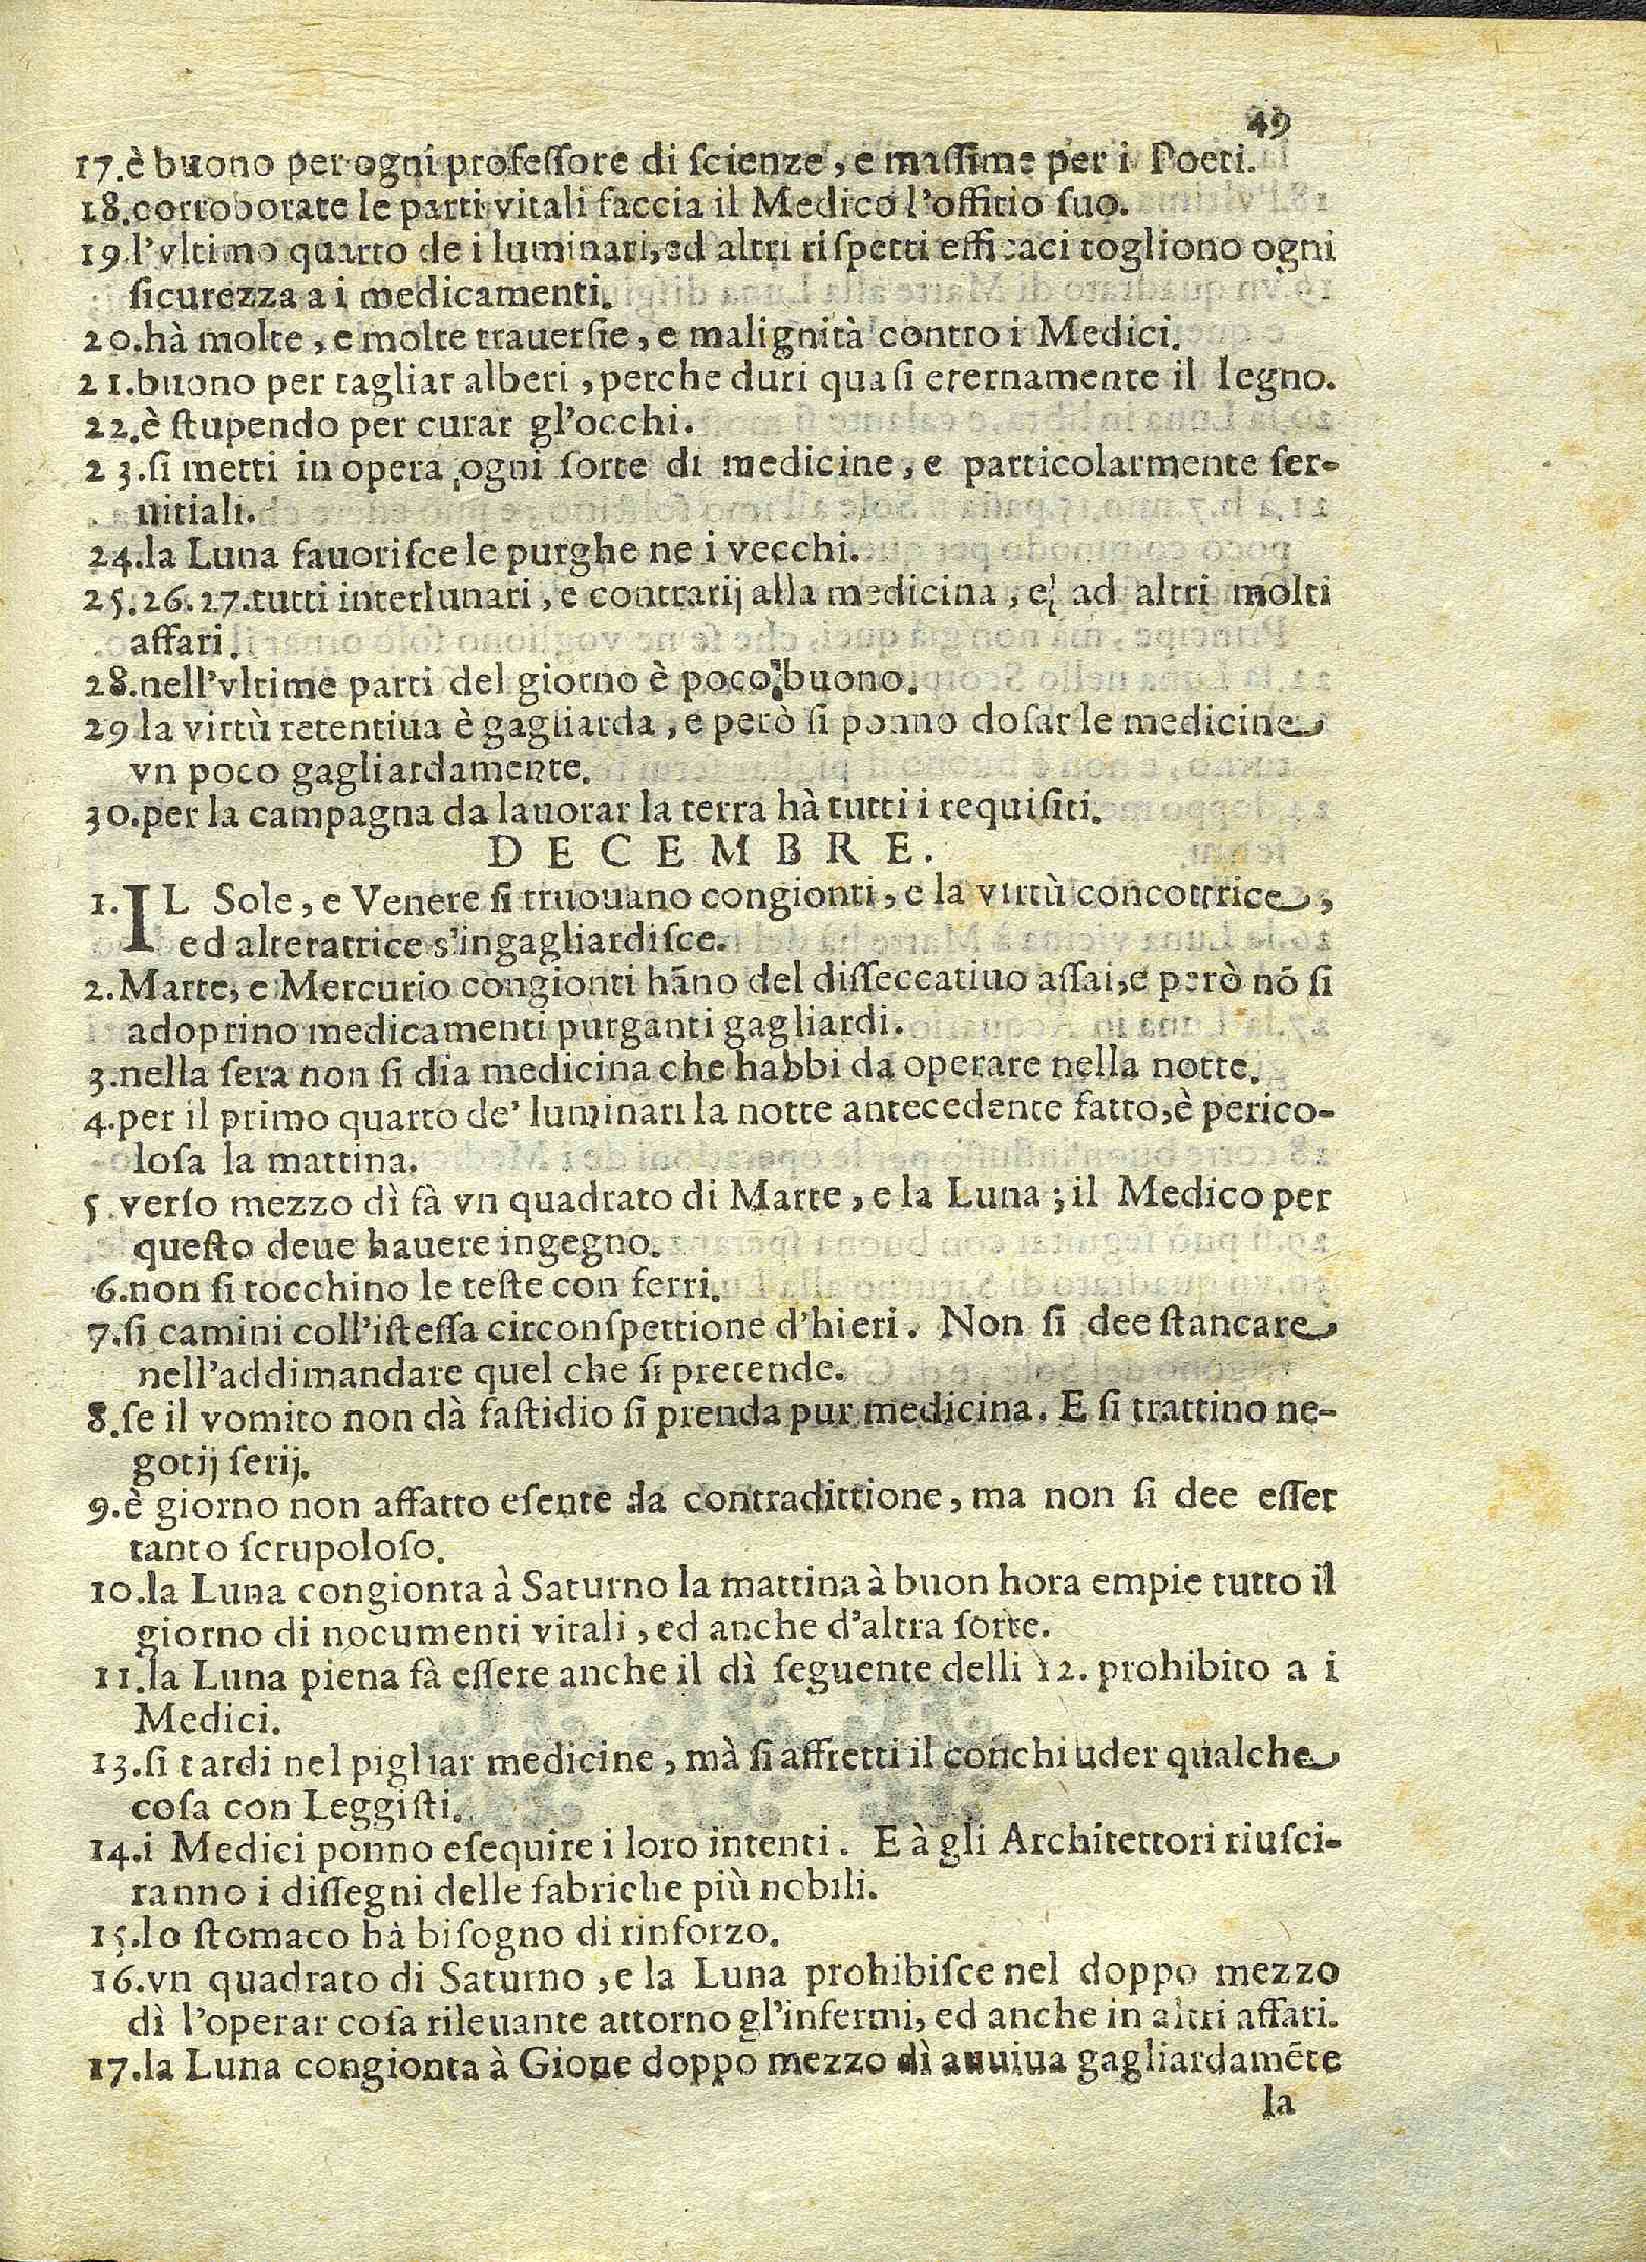 49
17.è buono per ogni profeſſore di ſcienze, e maſſime per i Poeti.
18.corroborate le parti vitali faccia il Medico l'offitio ſuo.
19.l'vltimo quarto de i luminari, ed altri riſpetti efficaci togliono ogni
ſicurezza a i medicamenti.
20.hà molte, e molte trauerſie, e malignità contro i Medici.
21.buono per tagliar alberi, perche duri quaſi eternamente il legno.
22.è ſtupendo per curar gl'occhi.
23.ſi metti in opera ogni ſorte di medicine, e particolarmente ſer-
uitiali.
24.la Luna fauoriſce le purghe ne i vecchi.
25.26.27.tutti interlunari, e contrarij alla medicina, e ad altri molti
affari.
28.nell'vltime parti del giorno è poco buono.
29 la virtù retentiua è gagliarda, e però ſi ponno doſar le medicine
vn poco gagliardamente.
30.per la campagna da lauorar la terra hà tutti i requiſiti.
DECEMBRE.
1.IL Sole, e Venere ſi truouano congionti, e la virtù concottrice,
ed alteratrice s'ingagliardiſce.
2.Marte, e Mercurio congionti hāno del diſſeccatiuo aſſai, e però nō ſi
adoprino medicamenti purganti gagliardi.
3.nella ſera non ſi dia medicina che habbi da operare nella notte.
4.per il primo quarto de' luminari la notte antecedente fatto, è perico-
loſa la mattina.
5.verſo mezzo dì fà vn quadrato di Marte, e la Luna; il Medico per
queſto deue hauere ingegno.
6.non ſi tocchino le teſte con ferri.
7.ſi camini coll'iſteſſa circonſpettione d'hieri. Non ſi dee ſtancare
nell'addimandare quel che ſi pretende.
8.ſe il vomito non dà faſtidio ſi prenda pur medicina. E ſi trattino ne-
gotij ſerij.
9.è giorno non affatto eſente da contradittione, ma non ſi dee eſſer
tanto ſcrupoloſo.
10.la Luna congionta à Saturno la mattina à buon hora empie tutto il
giorno di nocumenti vitali, ed anche d'altra ſorte.
11.la Luna piena fà eſſere anche il dì ſeguente delli 12. prohibito a i
Medici.
13.ſi tardi nel pigliar medicine, mà ſi affretti il conchiuder qualche
coſa con Leggiſti.
14.i Medici ponno eſequire i loro intenti. E à gli Architettori riuſci-
ranno i diſſegni delle fabriche più nobili.
15.lo ſtomaco hà biſogno di rinforzo.
16.vn quadrato di Saturno, e la Luna prohibiſce nel doppo mezzo
dì l'operar coſa rileuante attorno gl'infermi, ed anche in altri affari.
17.la Luna congionta à Gioue doppo mezzo dì auuiua gagliardamēte
la